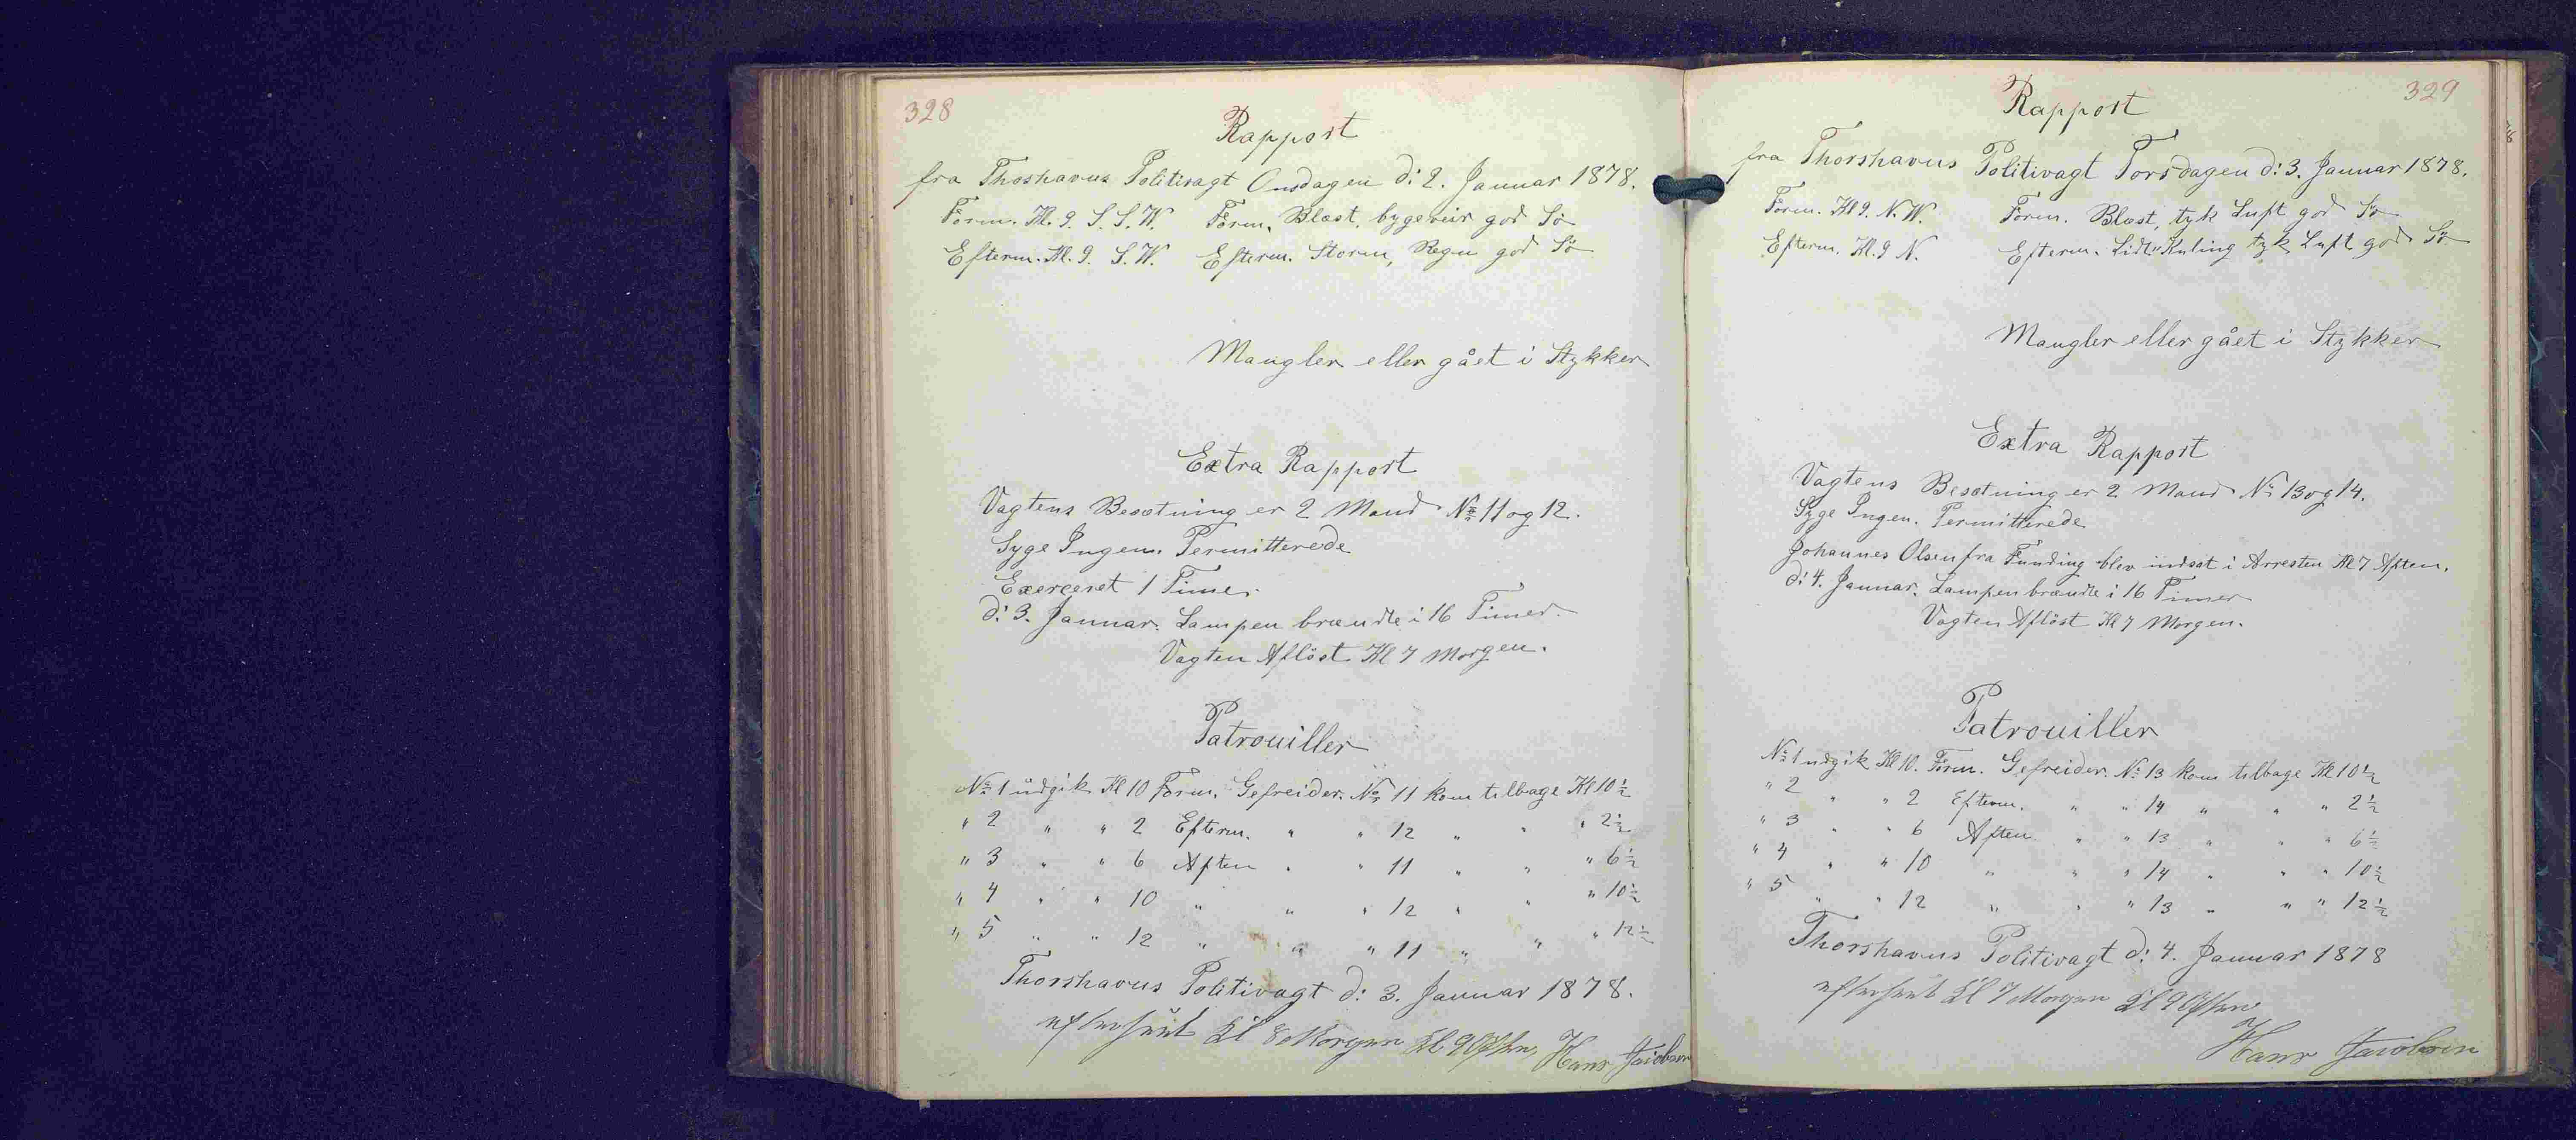 328
Rapport
fra Thoshavns Politivagt Onsdagen d: 2. Januar 1878.
Form. Kl. 9. S. S. W. Form. Blæst, bygeveir god Sö
Efterm. Kl. 9. S. W. Efterm. Storm, Regn god Sö
Mangler eller gået i Stykker
Extra Rapport
Vagtens Besætning er 2 Mand No 11 og 12.
Syge Ingen. Permitterede
Exerceret 1 Time.
d: 3. Januar. Lampen brændte i 16 Timer.
Vagten Aflöst Kl 7 Morgen.
Patrouiller
No 1 udgik Kl 10 Form. Gefreider. No 11 kom tilbage Kl 10½
" 2 " " 2 Efterm. " " 12 " " " 2½
" 3 " " 6 Aften " " 11 " " " 6½
" 4 " " 10 " " " 12 " " " 10½
" 5 " " 12 " " " 11 " " " 12½
Thorshavns Politivagt d: 3. Januar 1878.
efterseet Kl 8 Morgen Kl 9 Aften, Hans Jacobsen
329
Rapport
fra Thorshavns Politivagt Torsdagen d: 3. Januar 1878.
Form. Kl 9. N. W. Form. Blæst, tyk Luft god Sö
Efterm. Kl. 9 N. Efterm. Lidt Kuling tyk Luft god Sö
Mangler eller gået i Stykker
Extra Rapport
Vagtens Besætning er 2 Mand No 13 og 14.
Syge Ingen. Permitterede
Johannes Olsen fra Funding blev indsat i Arresten Kl 7 Aften.
d: 4. Januar. Lampen brændte i 16 Timer
Vagten Aflöst Kl 7 Morgen.
Patrouiller
No 1 udgik Kl 10. Form. Gefreider. No 13 kom tilbage Kl 10½
" 2 " " 2 Efterm. " " 14 " " " 2½
" 3 " " 6 Aften. " " 13 " " " 6½
" 4 " " 10 " " " 14 " " " 10½
" 5 " " 12 " " " 13 " " " 12½
Thorshavns Politivagt d: 4. Januar 1878
efterseet Kl 7 Morgen Kl 9 Aften
Hans Jacobsen